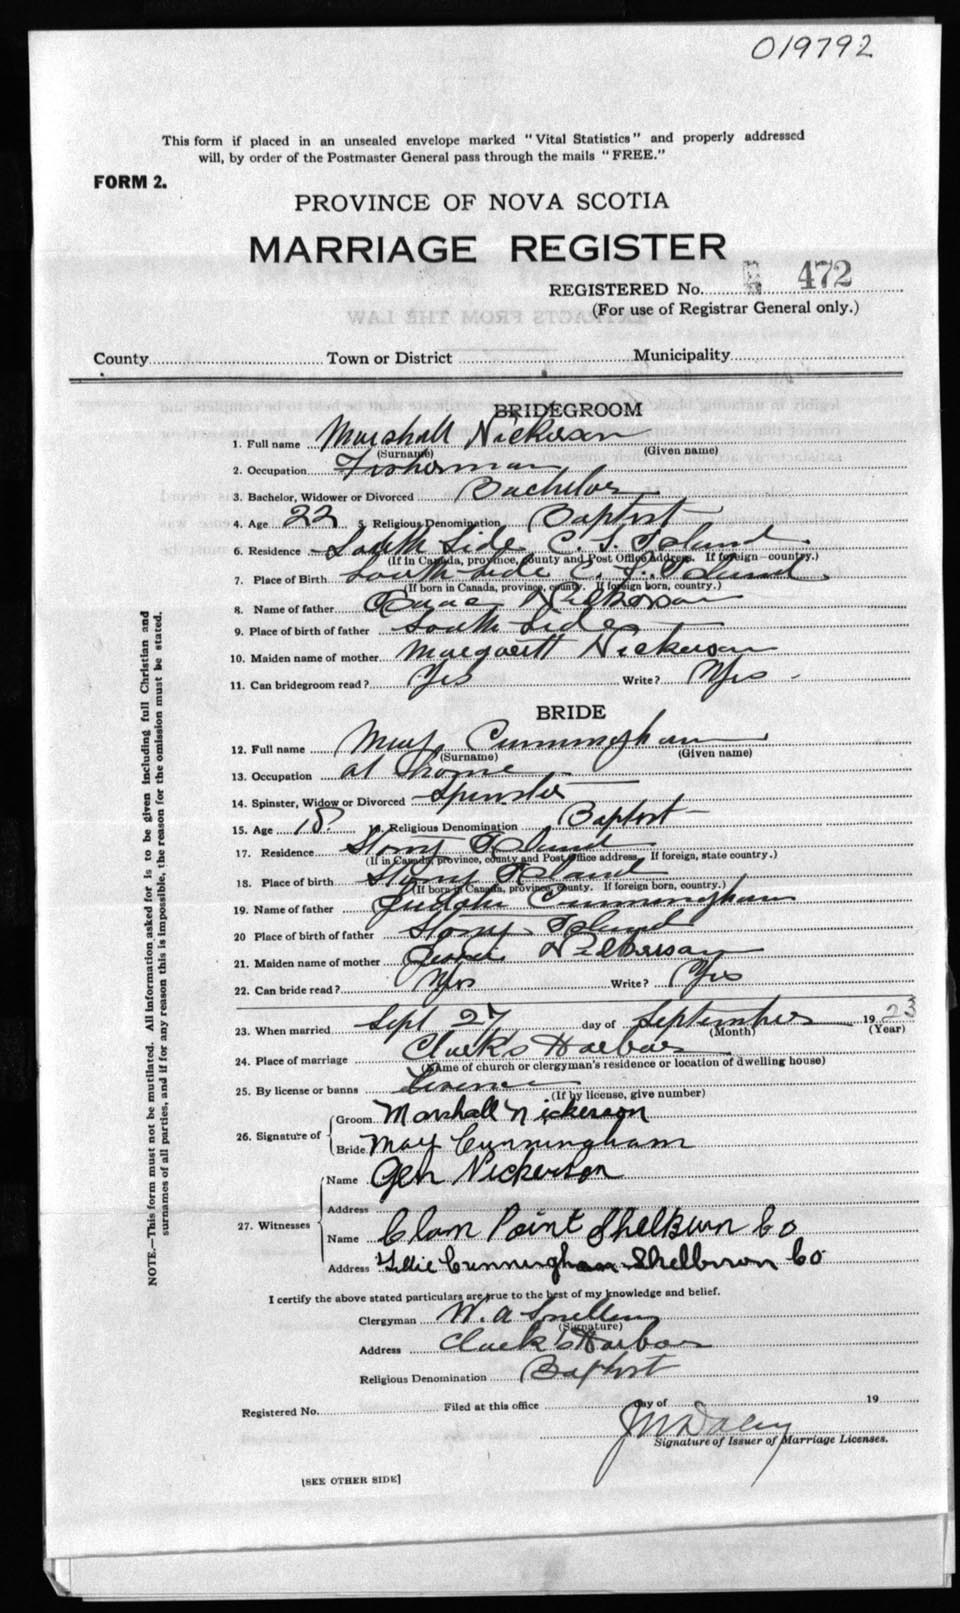 019792
This form if placed in an unsealed envelope marked "Vital Statistics" and properly addressed
will, by order of the Postmaster General pass through the mails "FREE."
FORM 2.
PROVINCE OF NOVA SCOTIA
MARRIAGE REGISTER
REGISTERED No. 472
(For use of Registrar General only.)
County Town or District Municipality
BRIDEGROOM
1. Full name Marshall Nickerson
(Surname) (Given name)
2. Occupation Fisherman
3. Bachelor, Widower or Divorced Bachelor
4. Age 22 5. Religious Denomination Baptist
6. Residence South Side C. S. Island
(If in Canada, province, county and Post Office Address. If foreign—country.)
7. Place of Birth South Side C. S. Island
(If born in Canada, province, county. If foreign born, country.)
8. Name of father Isaac Nickerson
9. Place of birth of father South Side
10. Maiden name of mother Margarett Nickerson
11. Can bridegroom read? Yes Write? Yes -
BRIDE
12. Full name May Cunningham
(Surname) (Given name)
13. Occupation at home
14. Spinster, Widow or Divorced Spinster
15. Age 18 Religious Denomination Baptist
17. Residence Stony Island
(If in Canada, province, county and Post Office address. If foreign, state country.)
18. Place of birth Stony Island
(If born in Canada, province, county. If foreign born, country.)
19. Name of father Cunningham
20 Place of birth of father Stony Island
21. Maiden name of mother Nickerson
22. Can bride read? Yes Write? Yes
23. When married Sept 27 day of September 1923
(Month) (Year)
24. Place of marriage Clark's Harbor
(Name of church or clergyman's residence or location of dwelling house)
25. By license or banns License
(If by license, give number)
26. Signature of Groom Marshall Nickerson
Bride May Cunningham
27. Witnesses Name Gen Nickerson
Address
Name Clam Point Shelburn Co
Address Tillie Cunningham Shelburn Co
I certify the above stated particulars are true to the best of my knowledge and belief.
Clergyman W. A. Snelling
(Signature)
Address Clark's Harbor
Religious Denomination Baptist
Registered No. Filed at this office day of 19
Signature of Issuer of Marriage Licenses.
[SEE OTHER SIDE]
NOTE.—This form must not be mutilated. All information asked for is to be given including full Christian and
surnames of all parties, and if for any reason this is impossible, the reason for the omission must be stated.